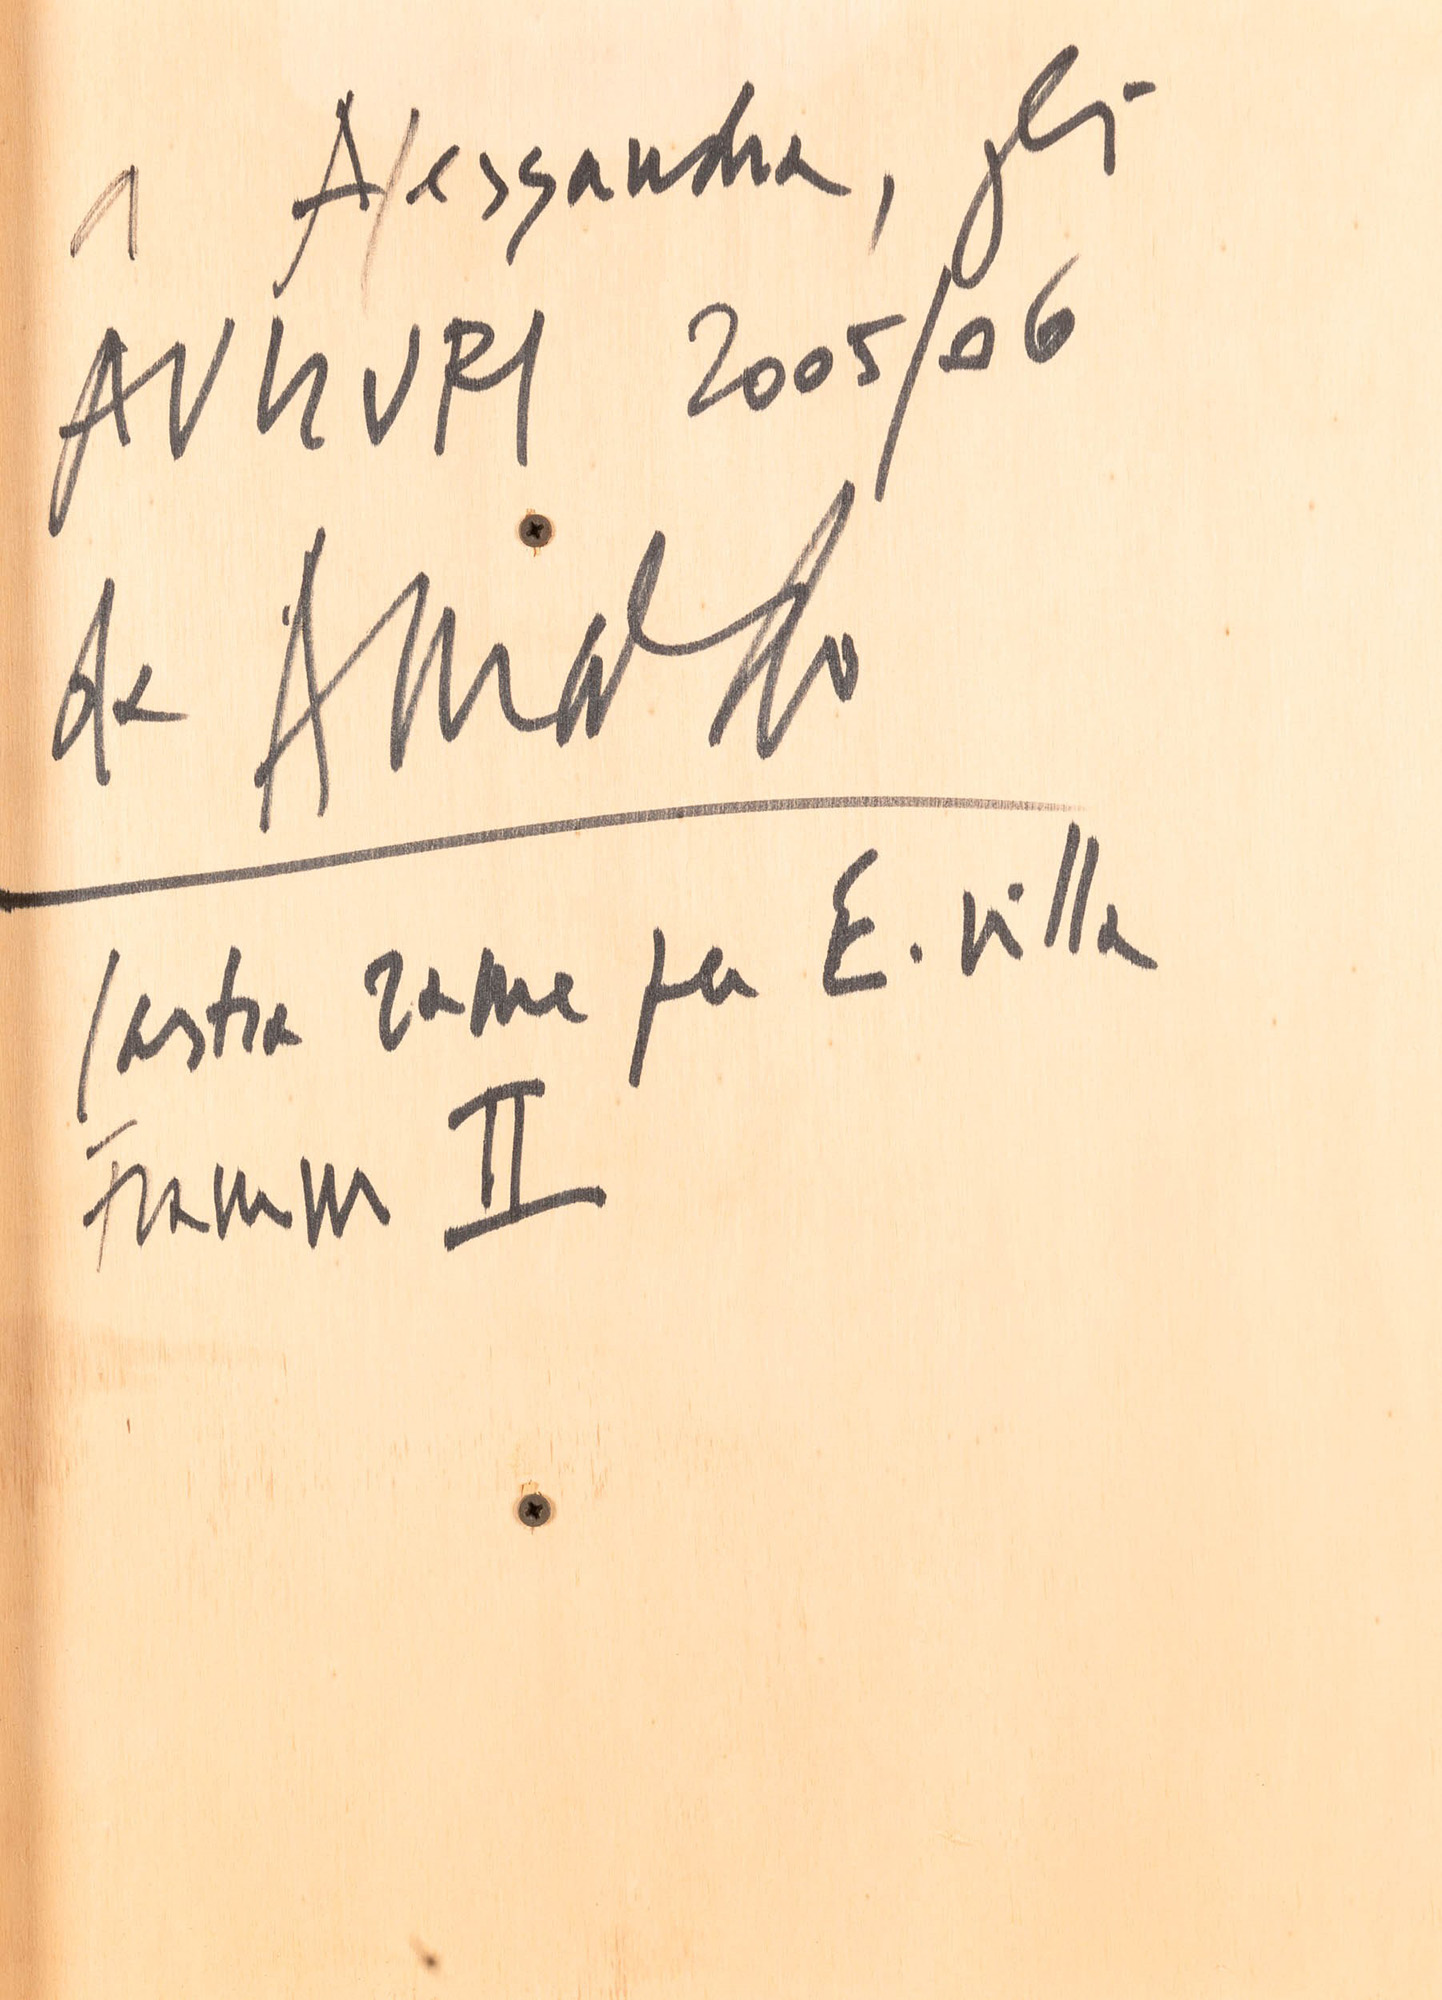 A Alessandra, gli
AVGVRI 2005/06
da Arnaldo
lastra rame per E. Villa
Framm II